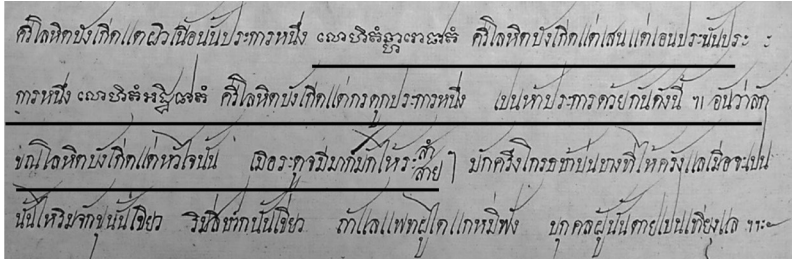 คีโลหิตบังเกีดแตผิวเนือนันประการหนึ่ง លោហិតំ คีโลหิตบังเกีดแต่เสนแต่เอนประนันประ
การหนึ่ง លោហិតំអដ្ឋិជាតំ คีโลหิตบังเกีดแต่กรดูกประการหนึ่ง เปนห้าประการด้วยกันดังนี้ ฯ อันว่าลัก
ขณโลหิตบังเกีดแต่หัวใจนั้น เมือระดูจมีมาก็มักให้ระส่ำสาย ๆ มักครึงโกรธบ้าบ่นบางทีให้ครังแลเมือจเปน
นั้นให้ริมจักขุนั้นเขียว ริมสีปากนั้นเขียว ถ้าแลแพทผู้ใดแกหมีฟัง บุคคลผู้นั้นตายเปนเทียงแล ฯะ